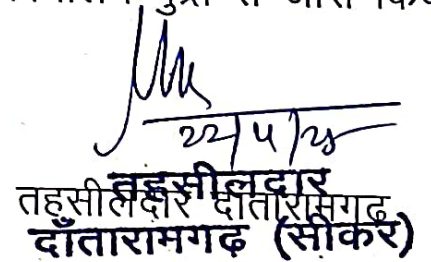 से जारी
22/5/25
तहसीलदार
तहसीलदार दांतारामगढ़
दाँतारामगढ़ (सीकर)